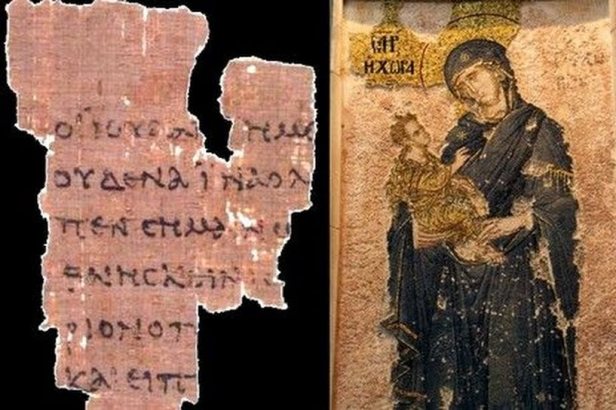 ΟΪΙΟΥΔΑΙ ΗΜΕ
ΟΥΔΕΝΑΪΝΑΟΛ
ΠΕΝCΗΜΑΙΝΩ
ΘΝΗCΚΕΙΝΙC
ΡΙΟΝΟΠ
ΚΑΙΕΙΠ
Η ΧΩΡΑ